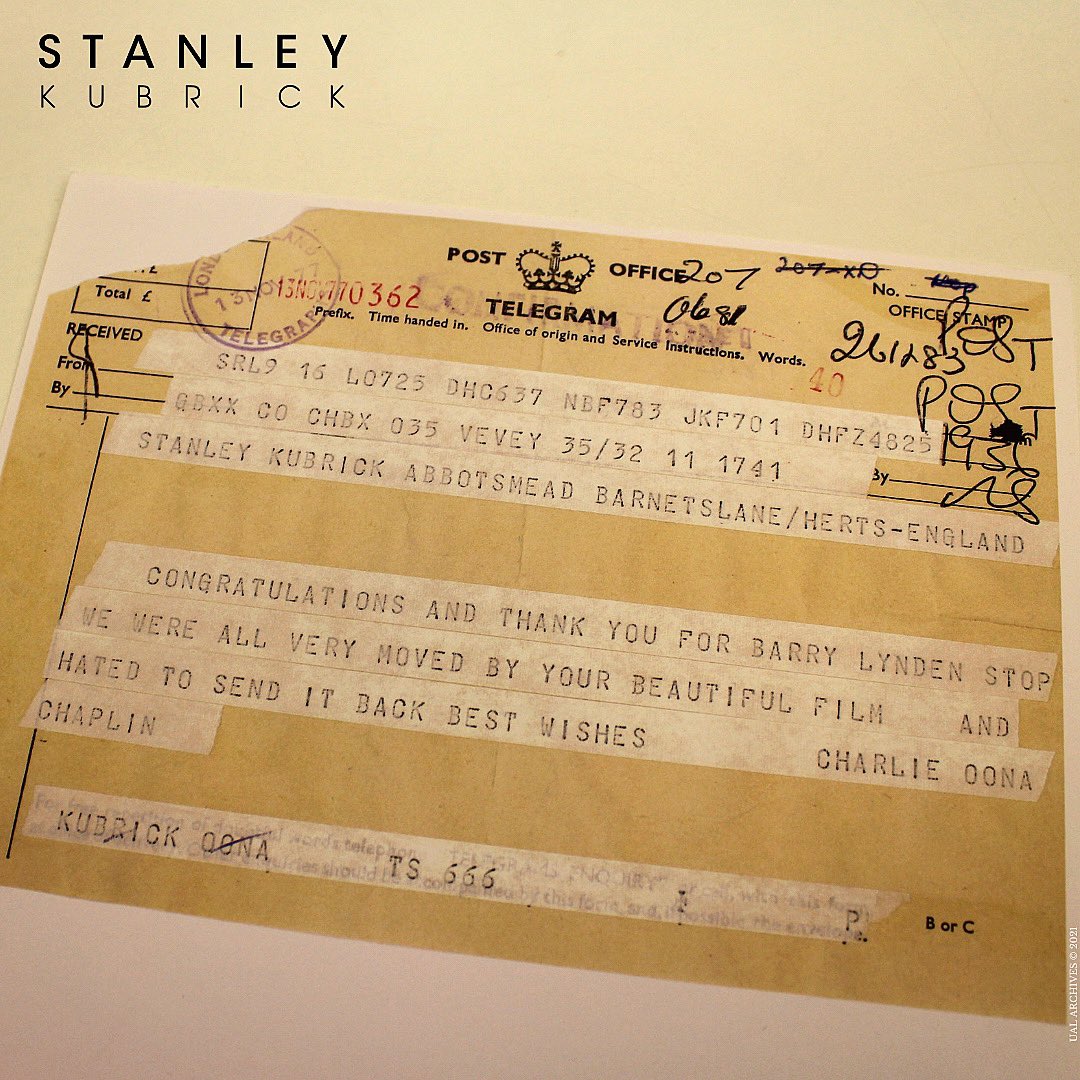 STANLEY
KUBRICK
POST OFFICE 207 207-XD
No.
OFFICE STAMP
LONDON TELEGRAPH
13 NOV 77 0362
TELEGRAM
CONFIRMATION
Total £
Prefix. Time handed in. Office of origin and Service Instructions. Words.
40
261283
POST
POST
RECEIVED
From
By
SRL9 16 L0725 DHC637 NBF783 JKF701 DHFZ4825
GBXX CO CHBX 035 VEVEY 35/32 11 1741
By
STANLEY KUBRICK ABBOTSMEAD BARNETSLANE/HERTS-ENGLAND
CONGRATULATIONS AND THANK YOU FOR BARRY LYNDEN STOP
WE WERE ALL VERY MOVED BY YOUR BEAUTIFUL FILM AND
HATED TO SEND IT BACK BEST WISHES CHARLIE OONA
CHAPLIN
KUBRICK OONA TS 666
P.
B or C
UAL ARCHIVES © 2021